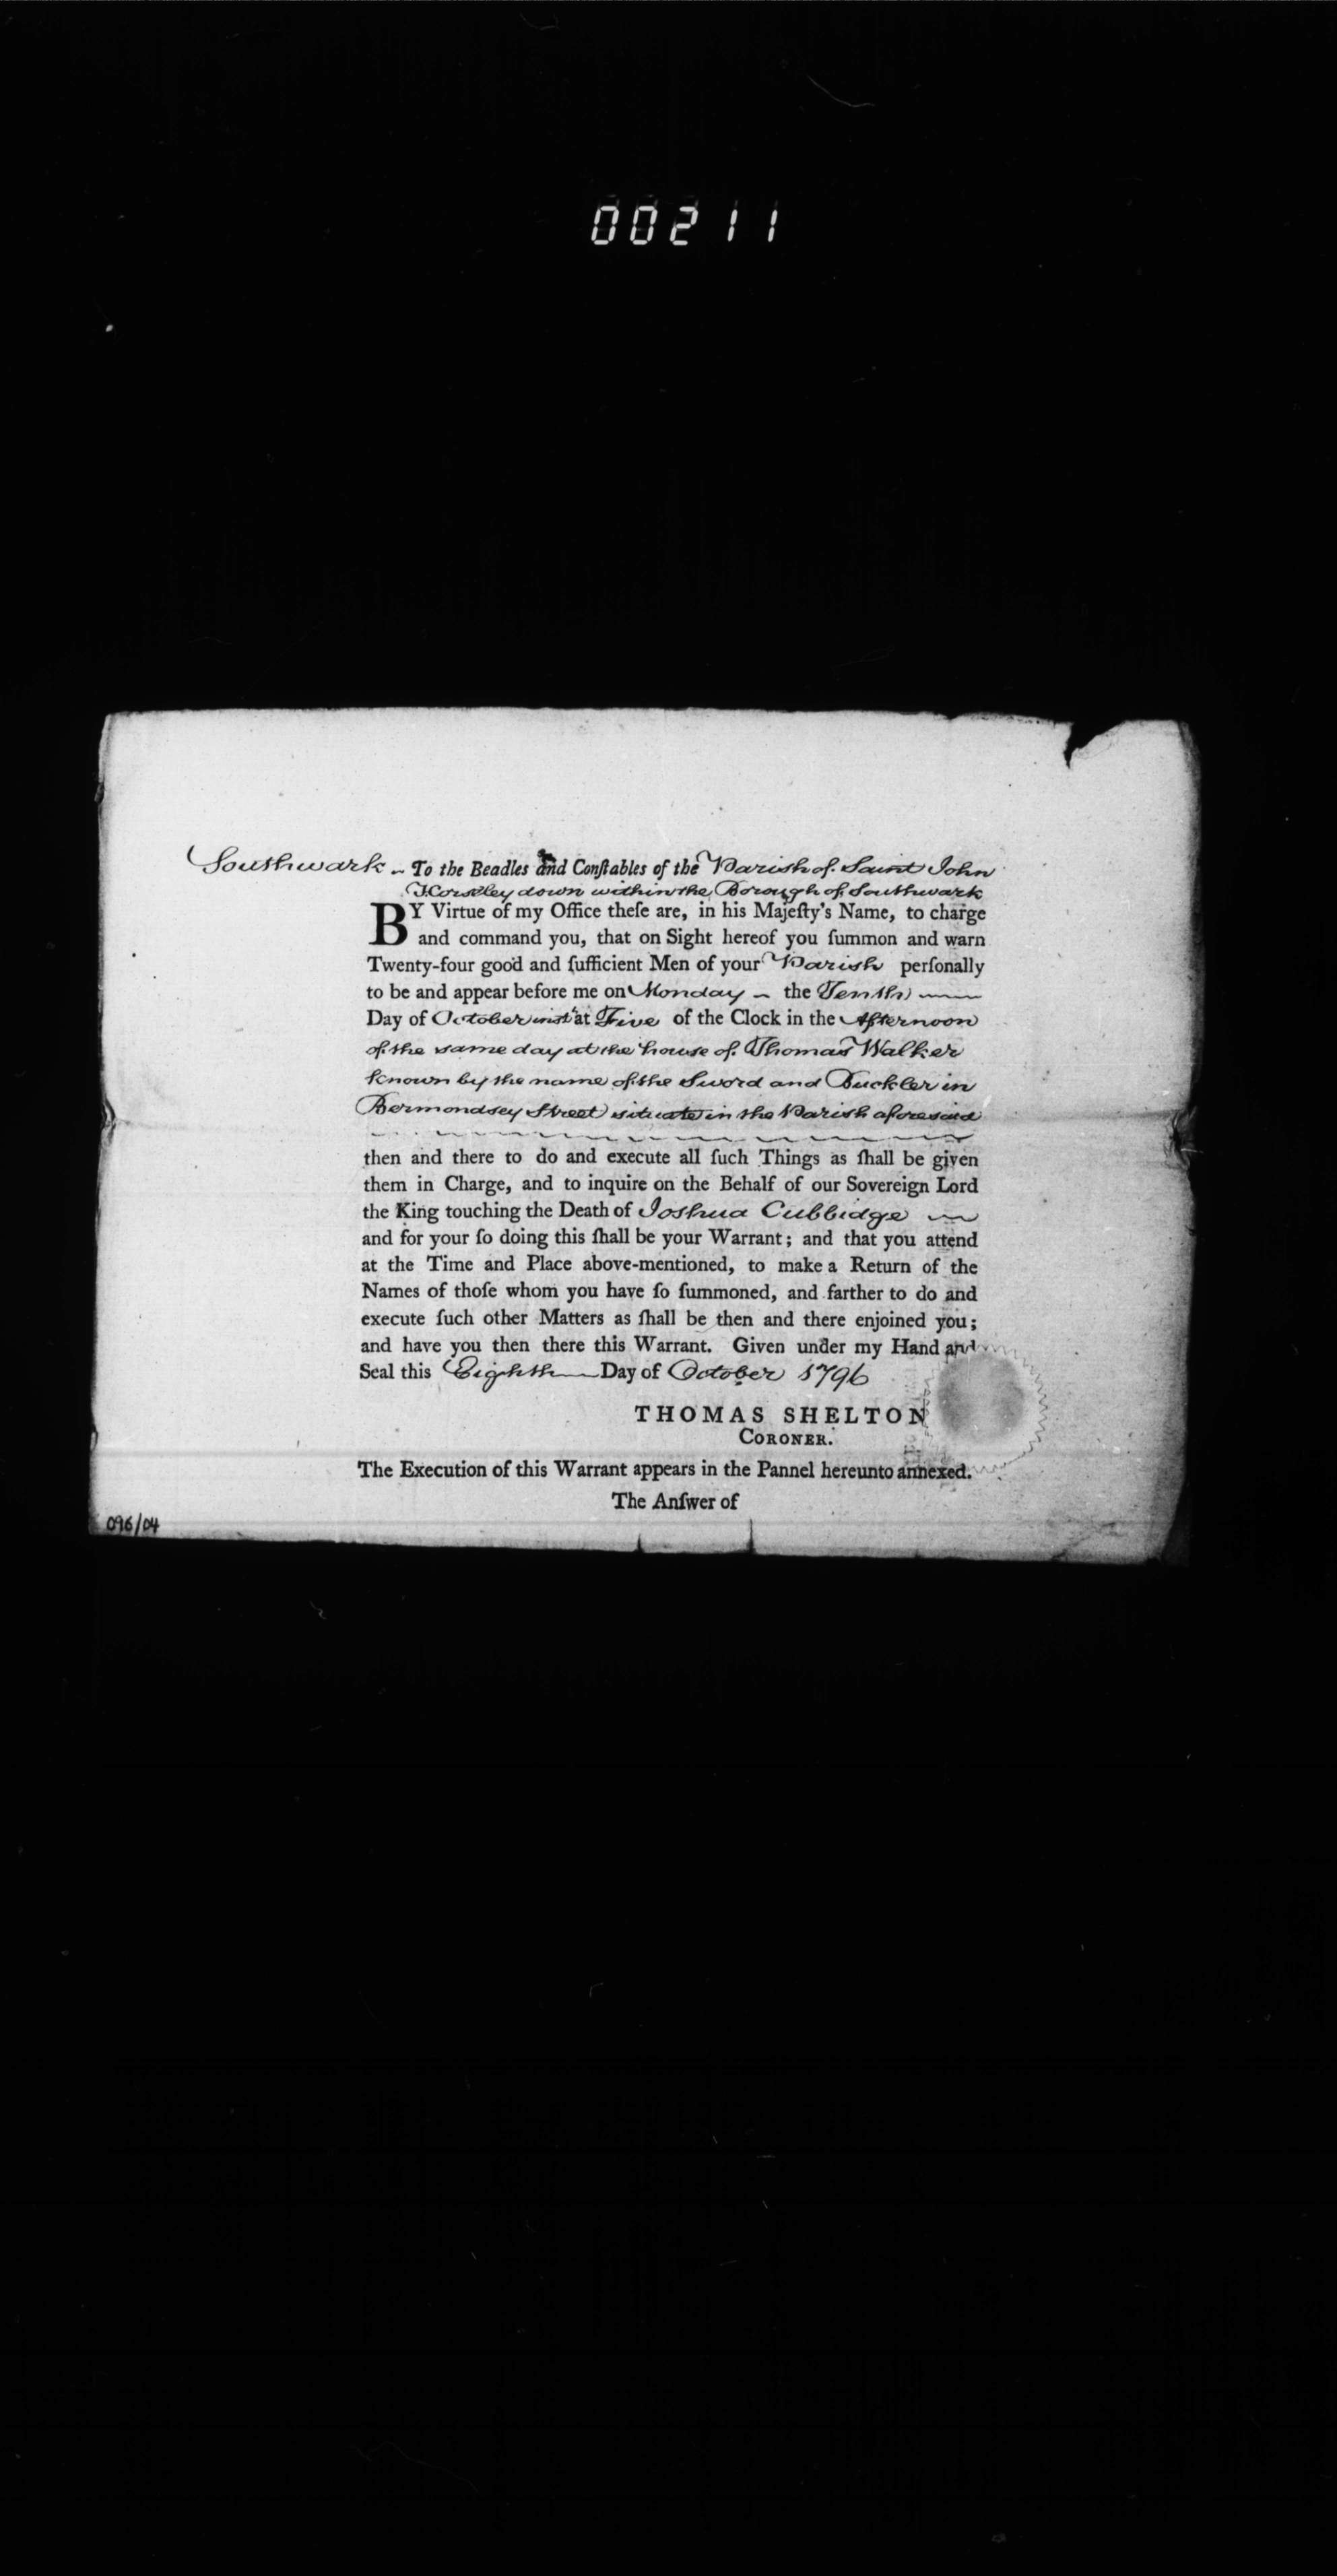 00211
Southwark - To the Beadles and Conſtables of the Parish of Saint John
Horseley down within the Borough of Southwark
BY Virtue of my Office theſe are, in his Majeſty's Name, to charge
and command you, that on Sight hereof you ſummon and warn
Twenty-four good and ſufficient Men of your Parish perſonally
to be and appear before me on Monday - the Tenth
Day of October inst at Five of the Clock in the Afternoon
of the same day at the house of Thomas Walker
known by the name of the Sword and Buckler in
Bermondsey Street situate in the Parish aforesaid
then and there to do and execute all ſuch Things as ſhall be given
them in Charge, and to inquire on the Behalf of our Sovereign Lord
the King touching the Death of Joshua Cubbidge
and for your ſo doing this ſhall be your Warrant; and that you attend
at the Time and Place above-mentioned, to make a Return of the
Names of thoſe whom you have ſo ſummoned, and farther to do and
execute ſuch other Matters as ſhall be then and there enjoined you;
and have you then there this Warrant. Given under my Hand and
Seal this Eighth Day of October 1796
THOMAS SHELTON
CORONER.
The Execution of this Warrant appears in the Pannel hereunto annexed.
The Anſwer of
096/04